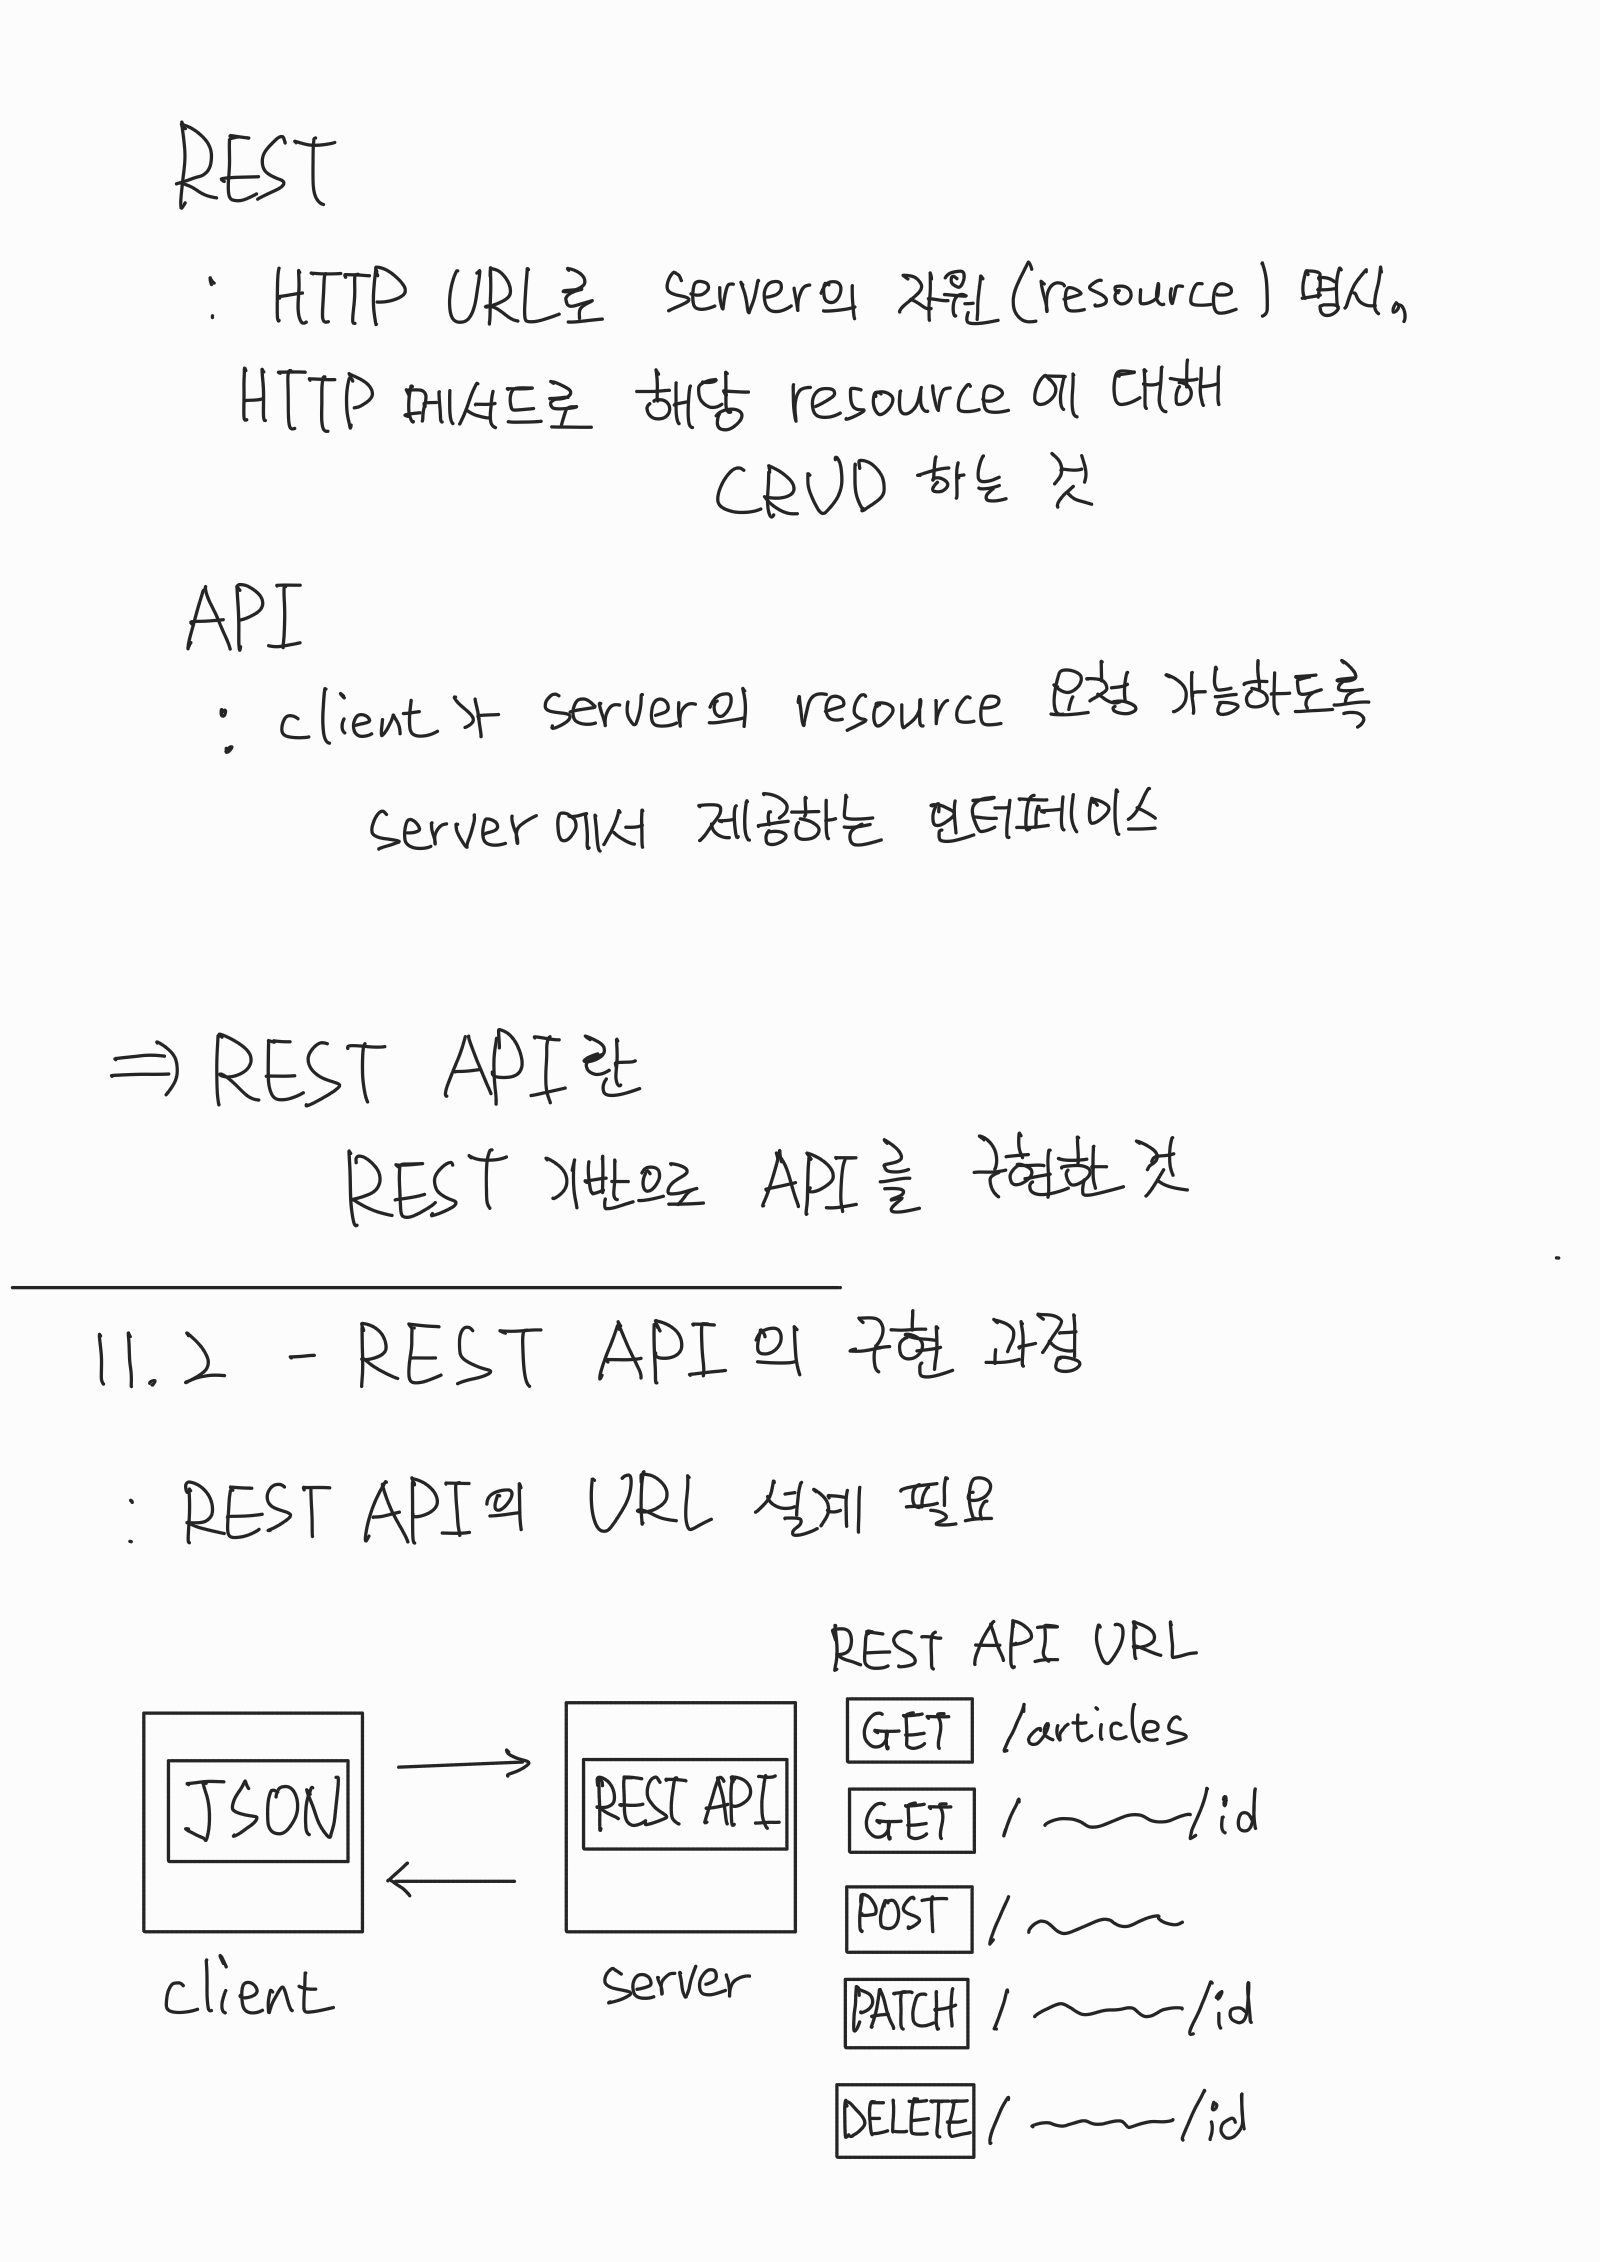 REST
: HTTP URL로 server의 자원(resource) 명시,
HTTP 메서드로 해당 resource에 대해
CRUD 하는 것
API
: client가 server의 resource 요청 가능하도록
server에서 제공하는 인터페이스
⇒ REST API란
REST 기반으로 API를 구현한 것
11.2 - REST API의 구현 과정
: REST API의 URL 설계 필요
REST API URL
GET /articles
GET / /id
POST /
PATCH / /id
DELETE / /id
JSON
client
REST API
server